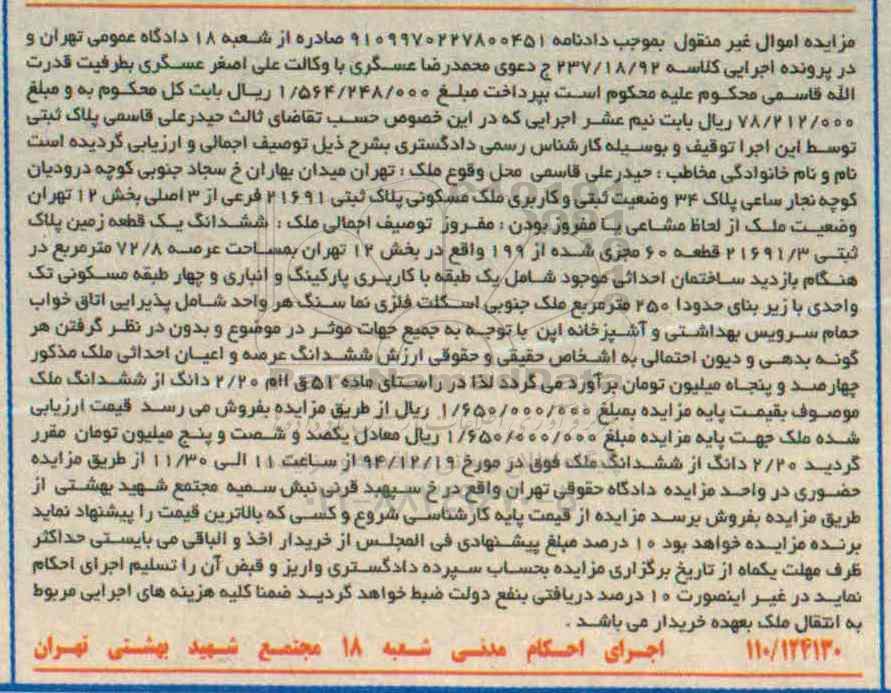 مزایده اموال غیر منقول بموجب دادنامه ۹۱۰۹۹۷۰۲۲۷۸۰۰۴۵۱ صادره از شعبه ۱۸ دادگاه عمومی تهران و
در پرونده اجرایی کلاسه ۲۳۷/۱۸/۹۲ ج دعوی محمدرضا عسگری با وکالت علی اصغر عسگری بطرفیت قدرت
الله قاسمی محکوم علیه محکوم است بپرداخت مبلغ ۱/۵۶۴/۲۴۸/۰۰۰ ریال بابت کل محکوم به و مبلغ
۷۸/۲۱۲/۰۰۰ ریال بابت نیم عشر اجرایی که در این خصوص حسب تقاضای ثالث حیدرعلی قاسمی پلاک ثبتی
توسط این اجرا توقیف و بوسیله کارشناس رسمی دادگستری بشرح ذیل توصیف اجمالی و ارزیابی گردیده است
نام و نام خانوادگی مخاطب : حیدرعلی قاسمی محل وقوع ملک : تهران میدان بهاران خ سجاد جنوبی کوچه درودیان
کوچه نجار ساعی پلاک ۳۴ وضعیت ثبتی و کاربری ملک مسکونی پلاک ثبتی ۲۱۶۹۱ فرعی از ۳ اصلی بخش ۱۲ تهران
وضعیت ملک از لحاظ مشاعی یا مفروز بودن : مفروز توصیف اجمالی ملک : ششدانگ یک قطعه زمین پلاک
ثبتی ۲۱۶۹۱/۳ قطعه ۶۰ مجزی شده از ۱۹۹ واقع در بخش ۱۲ تهران بمساحت عرصه ۷۲/۸ مترمربع در
هنگام بازدید ساختمان احداثی موجود شامل یک طبقه با کاربری پارکینگ و انباری و چهار طبقه مسکونی تک
واحدی با زیر بنای حدودا ۲۵۰ مترمربع ملک جنوبی اسکلت فلزی نما سنگ هر واحد شامل پذیرایی اتاق خواب
حمام سرویس بهداشتی و آشپزخانه اپن با توجه به جمیع جهات موثر در موضوع و بدون در نظر گرفتن هر
گونه بدهی و دیون احتمالی به اشخاص حقیقی و حقوقی ارزش ششدانگ عرصه و اعیان احداثی ملک مذکور
چهارصد و پنجاه میلیون تومان برآورد می گردد لذا در راستای ماده ۵۱ ق اام ۲/۲۰ دانگ از ششدانگ ملک
موصوف بقیمت پایه مزایده بمبلغ ۱/۶۵۰/۰۰۰/۰۰۰ ریال از طریق مزایده بفروش می رسد قیمت ارزیابی
شده ملک جهت پایه مزایده مبلغ ۱/۶۵۰/۰۰۰/۰۰۰ ریال معادل یکصد و شصت و پنج میلیون تومان مقرر
گردید ۲/۲۰ دانگ از ششدانگ ملک فوق در مورخ ۹۴/۱۲/۱۹ از ساعت ۱۱ الی ۱۱/۳۰ از طریق مزایده
حضوری در واحد مزایده دادگاه حقوقی تهران واقع در خ سپهبد قرنی نبش سمیه مجتمع شهید بهشتی از
طریق مزایده بفروش برسد مزایده از قیمت پایه کارشناسی شروع و کسی که بالاترین قیمت را پیشنهاد نماید
برنده مزایده خواهد بود ۱۰ درصد مبلغ پیشنهادی فی المجلس از خریدار اخذ و الباقی می بایستی حداکثر
ظرف مهلت یکماه از تاریخ برگزاری مزایده بحساب سپرده دادگستری واریز و قبض آن را تسلیم اجرای احکام
نماید در غیر اینصورت ۱۰ درصد دریافتی بنفع دولت ضبط خواهد گردید ضمنا کلیه هزینه های اجرایی مربوط
به انتقال ملک بعهده خریدار می باشد .
۱۱۰/۱۲۴۱۳۰ اجرای احکام مدنی شعبه ۱۸ مجتمع شهید بهشتی تهران